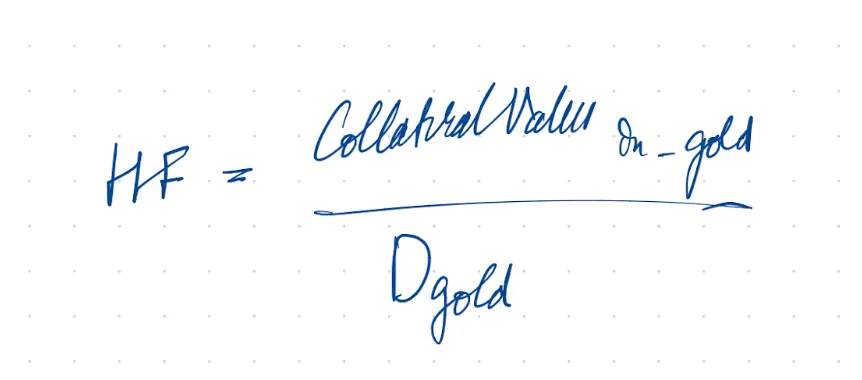 HF = Collateral Value in_gold
D gold